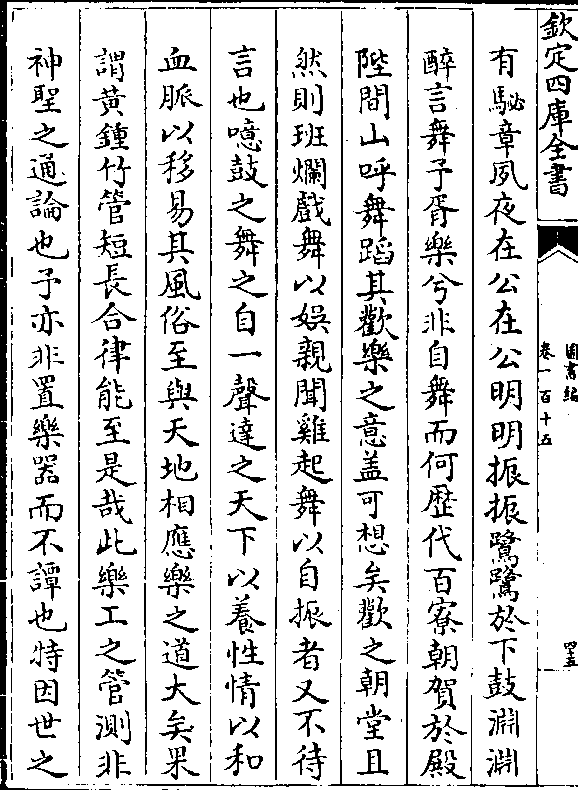 欽定四庫全書
圖書編
卷一百十五
四五
有駜章夙夜在公在公明明振振鷺鷺於下鼓淵淵
醉言舞予胥樂兮非自舞而何歷代百寮朝賀於殿
陛間山呼舞蹈其歡樂之意盖可想矣歡之朝堂且
然則班斕戲舞以娛親聞雞起舞以自振者又不待
言也噫鼓之舞之自一聲達之天下以養性情以和
血脈以移易其風俗至與天地相應樂之道大矣果
謂黃鍾竹管短長合律能至是哉此樂工之管測非
神聖之通論也予亦非置樂器而不譚也特因世之